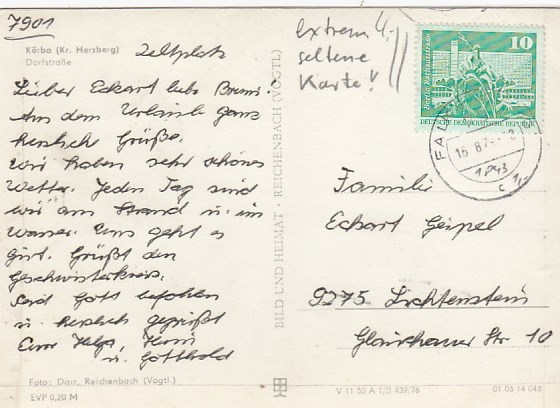 7901
Körba (Kr. Herzberg) Zeltplatz
Dorfstraße
Lieber Eckart liebe Bruni.
Aus dem Urlaub ganz
herzliche Grüße.
Wir haben sehr schönes
Wetter. Jeden Tag sind
wir am Strand u. im
Wasser. Uns geht es
gut. Grüßt den
Geschwisterkreis.
Seid Gott befohlen
u. herzlich gegrüßt
Eure Helga,
u. Gotthold
Foto: Darr, Reichenbach (Vogtl.)
EVP 0,20 M
BILD UND HEIMAT · REICHENBACH (VOGTL)
extrem 4,-
seltene
Karte!
10
DEUTSCHE DEMOKRATISCHE REPUBLIK
1943
c
Familie
Eckart Geipel
9275 Lichtenstein
Glauchauer Str 10
V 11 50 A 1/B 439/76 01 06 14 048